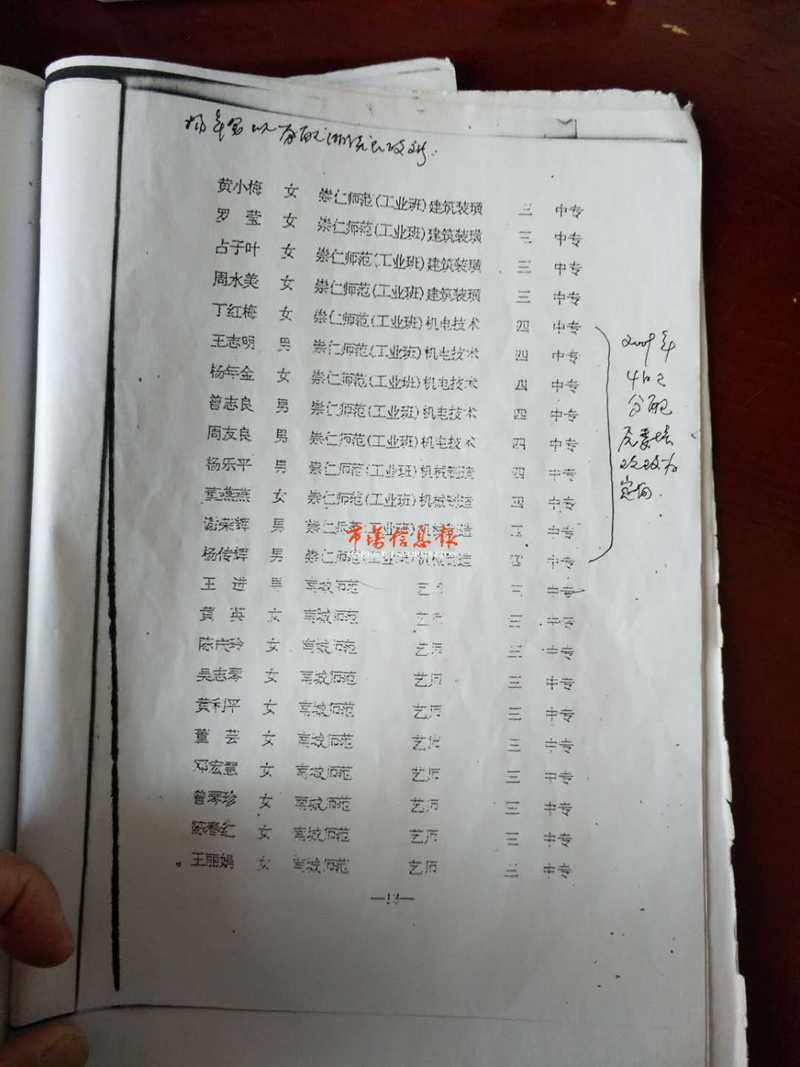 黄小梅 女 崇仁师范(工业班)建筑装璜 三 中专
罗莹 女 崇仁师范(工业班)建筑装璜 三 中专
占子叶 女 崇仁师范(工业班)建筑装璜 三 中专
周水美 女 崇仁师范(工业班)建筑装璜 三 中专
丁红梅 女 崇仁师范(工业班)机电技术 四 中专
王志明 男 崇仁师范(工业班)机电技术 四 中专
杨年金 女 崇仁师范(工业班)机电技术 四 中专
曾志良 男 崇仁师范(工业班)机电技术 四 中专
周友良 男 崇仁师范(工业班)机电技术 四 中专
杨乐平 男 崇仁师范(工业班)机械制造 四 中专
燕燕 女 崇仁师范(工业班)机械制造 四 中专
谢荣辉 男 崇仁师范(工业班)机械制造 中专
市场信息报
杨传辉 男 崇仁师范(工业班)机械制造 四 中专
王进 男 南城师范 艺师 三 中专
黄英 女 南城师范 艺师 三 中专
陈 玲 女 南城师范 艺师 三 中专
吴志琴 女 南城师范 艺师 三 中专
黄利平 女 南城师范 艺师 三 中专
董芸 女 南城师范 艺师 三 中专
邓宏慧 女 南城师范 艺师 三 中专
曾琴珍 女 南城师范 艺师 三 中专
陈春红 女 南城师范 艺师 三 中专
王丽娟 女 南城师范 艺师 三 中专
—13—
分配